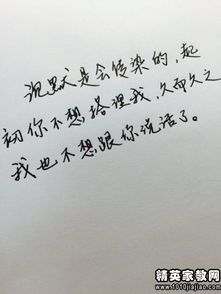 沉默是会传染的,起
初你不想搭理我,久而久之
我也不想跟你说话了。
精英家教网
www.1010jiajiao.com